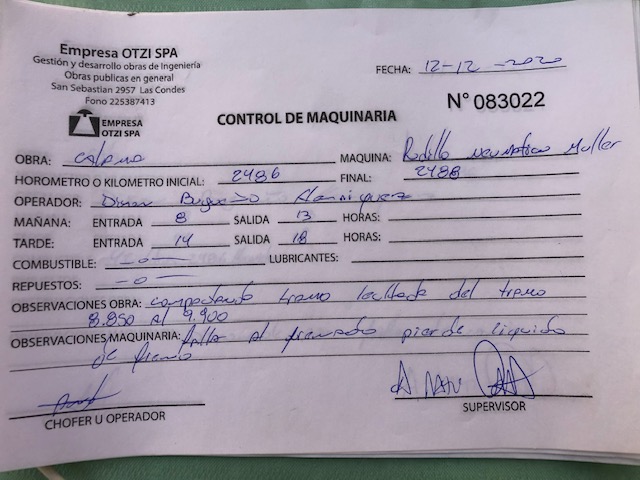 Empresa OTZI SPA
Gestión y desarrollo obras de Ingeniería
Obras publicas en general
San Sebastián 2957 Las Condes
Fono 225387413
EMPRESA
OTZI SPA
FECHA: 12-12-2020
CONTROL DE MAQUINARIA
N° 083022
OBRA: MAQUINA: Rodillo Muller
HOROMETRO O KILOMETRO INICIAL: 2486 FINAL: 2488
OPERADOR:
MAÑANA: ENTRADA 8 SALIDA 13 HORAS:
TARDE: ENTRADA 14 SALIDA 18 HORAS:
COMBUSTIBLE: -0- LUBRICANTES:
REPUESTOS: -0-
OBSERVACIONES OBRA: compactando tramo del tramo
8.850 al 8.900
OBSERVACIONES MAQUINARIA: falla pierde liquido
de freno
CHOFER U OPERADOR
SUPERVISOR